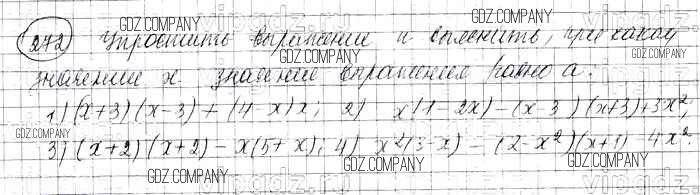 272 Упростить выражение и выяснить, при каком
значении x значение выражения равно a:
1) (x+3)(x-3)+(4-x)x; 2) x(1-2x)-(x-3)(x+3)+3x²;
3) (x+2)(x+2)-x(5+x); 4) x²(3-x)-(2-x²)(x+1)-4x²
GDZ.COMPANY
GDZ.COMPANY
GDZ.COMPANY
GDZ.COMPANY
GDZ.COMPANY
GDZ.COMPANY
GDZ.COMPANY
GDZ.COMPANY
GDZ.COMPANY